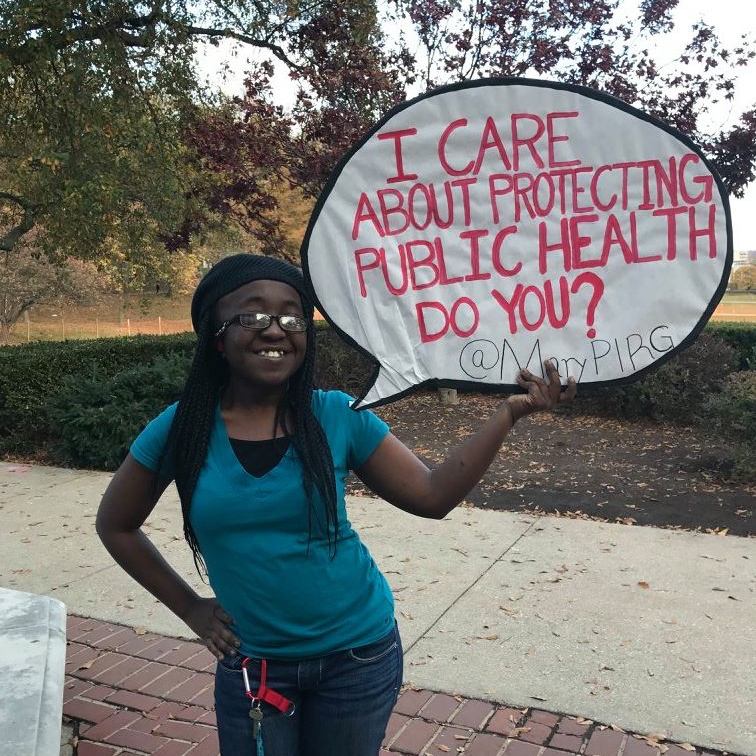 I CARE
ABOUT PROTECTING
PUBLIC HEALTH
DO YOU?
@MaryPIRG